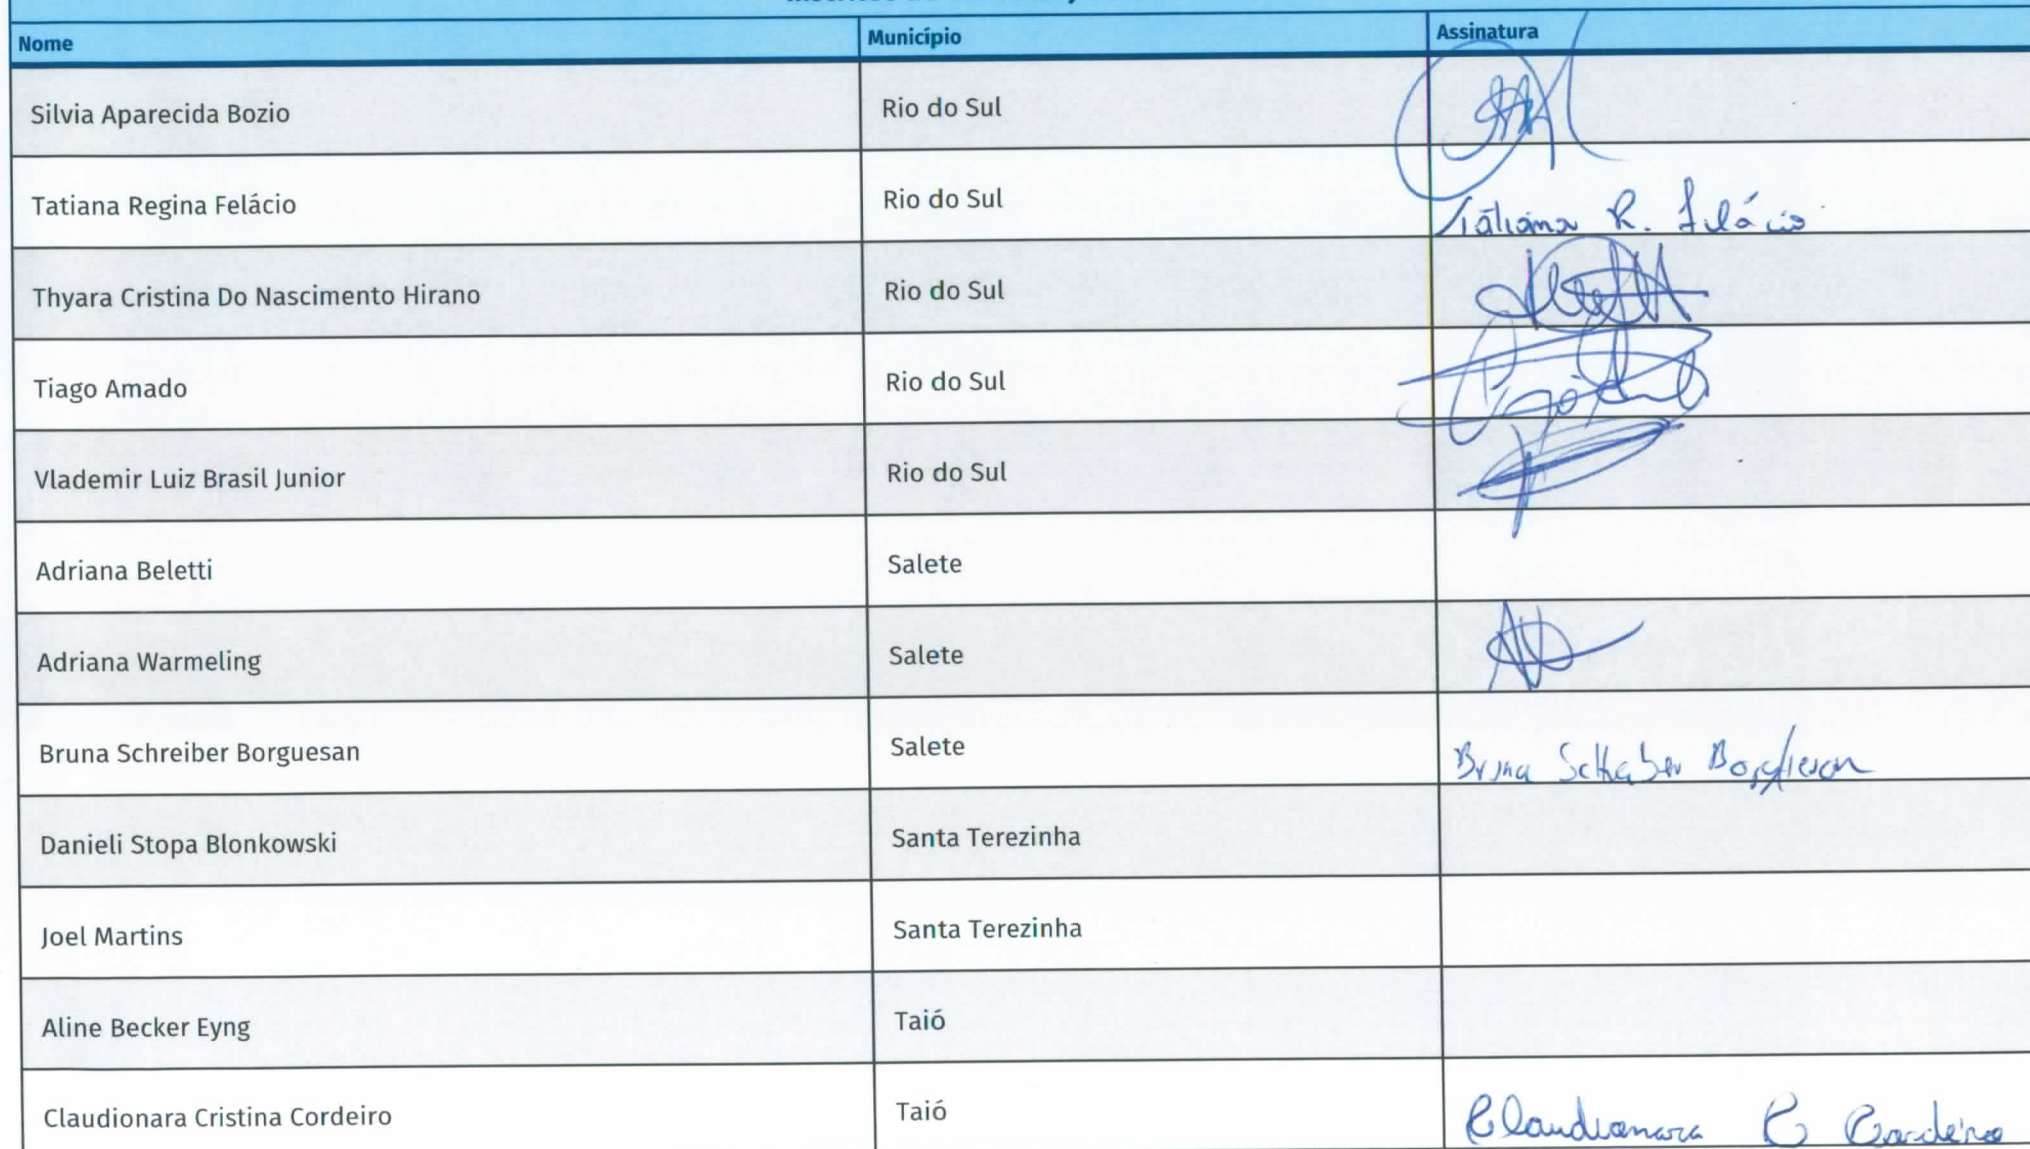 Nome Município Assinatura
Silvia Aparecida Bozio Rio do Sul
Tatiana Regina Felácio Rio do Sul Tatiana R. Felácio
Thyara Cristina Do Nascimento Hirano Rio do Sul
Tiago Amado Rio do Sul
Vlademir Luiz Brasil Junior Rio do Sul
Adriana Beletti Salete
Adriana Warmeling Salete
Bruna Schreiber Borguesan Salete Bruna
Danieli Stopa Blonkowski Santa Terezinha
Joel Martins Santa Terezinha
Aline Becker Eyng Taió
Claudionara Cristina Cordeiro Taió Claudionara C Cordeiro